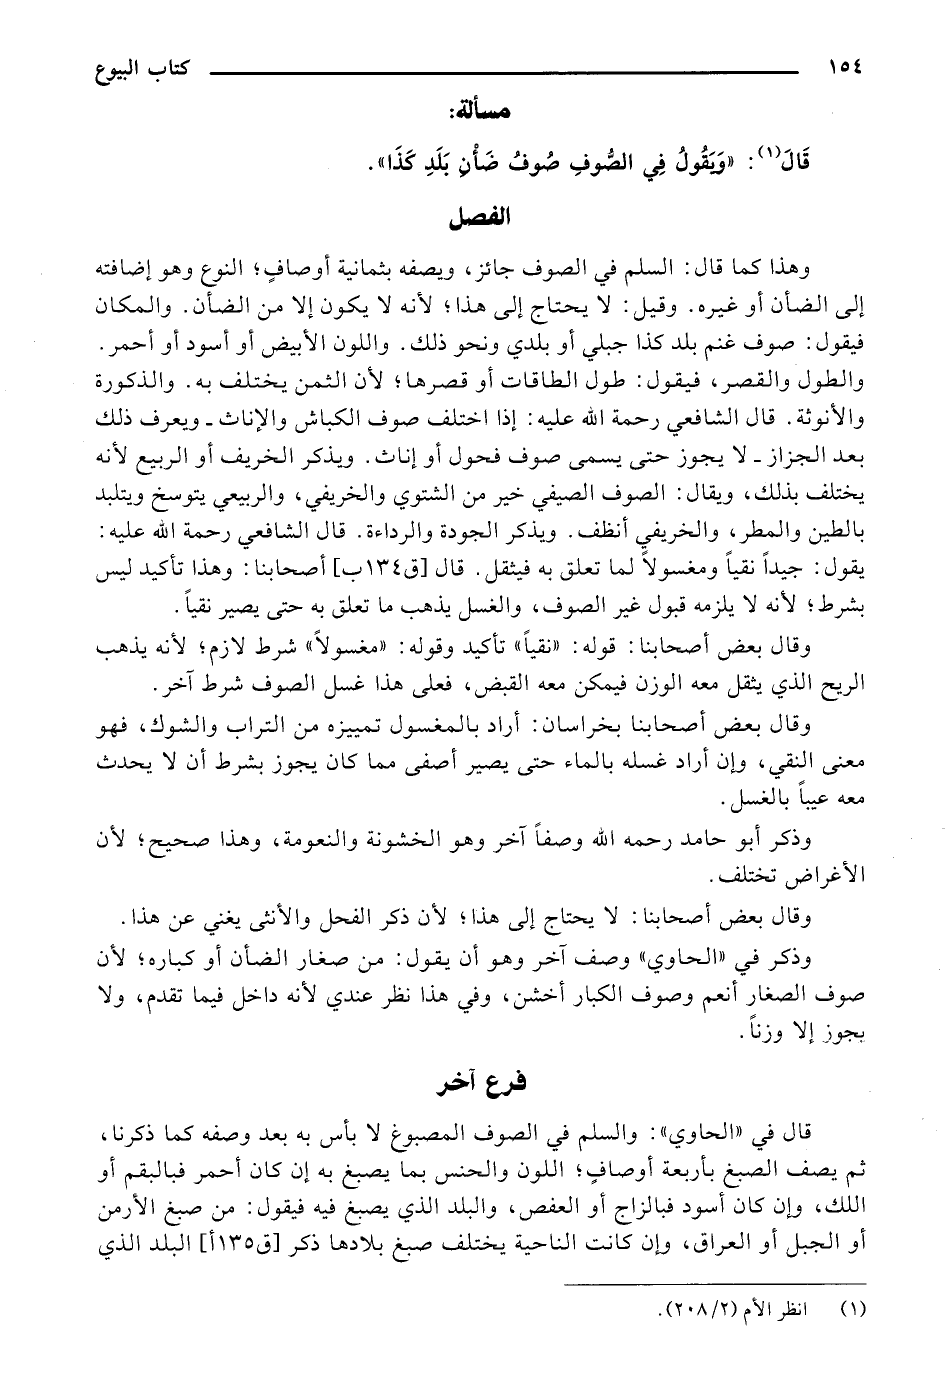 ١٥٤ كتاب البيوع
مسألة:
قَالَ(١): «وَيَقُولُ فِي الصُّوفِ صُوفُ ضَأْنِ بَلَدِ كَذَا».
الفصل
وهذا كما قال: السلم في الصوف جائز، ويصفه بثمانية أوصافٍ؛ النوع وهو إضافته
إلى الضأن أو غيره. وقيل: لا يحتاج إلى هذا؛ لأنه لا يكون إلا من الضأن. والمكان
فيقول: صوف غنم بلد كذا جبلي أو بلدي ونحو ذلك. واللون الأبيض أو أسود أو أحمر.
والطول والقصر، فيقول: طول الطاقات أو قصرها؛ لأن الثمن يختلف به. والذكورة
والأنوثة. قال الشافعي رحمة الله عليه: إذا اختلف صوف الكباش والإناث ـ ويعرف ذلك
بعد الجزاز ـ لا يجوز حتى يسمى صوف فحول أو إناث. ويذكر الخريف أو الربيع لأنه
يختلف بذلك، ويقال: الصوف الصيفي خير من الشتوي والخريفي، والربيعي يتوسخ ويتلبد
بالطين والمطر، والخريفي أنظف. ويذكر الجودة والرداءة. قال الشافعي رحمة الله عليه:
يقول: جيداً نقياً ومغسولاً لما تعلق به فيثقل. قال [ق١٣٤ب] أصحابنا: وهذا تأكيد ليس
بشرط؛ لأنه لا يلزمه قبول غير الصوف، والغسل يذهب ما تعلق به حتى يصير نقياً.
وقال بعض أصحابنا: قوله: «نقياً» تأكيد وقوله: «مغسولاً» شرط لازم؛ لأنه يذهب
الريح الذي يثقل معه الوزن فيمكن معه القبض، فعلى هذا غسل الصوف شرط آخر.
وقال بعض أصحابنا بخراسان: أراد بالمغسول تمييزه من التراب والشوك، فهو
معنى النقي، وإن أراد غسله بالماء حتى يصير أصفى مما كان يجوز بشرط أن لا يحدث
معه عيباً بالغسل.
وذكر أبو حامد رحمه الله وصفاً آخر وهو الخشونة والنعومة، وهذا صحيح؛ لأن
الأغراض تختلف.
وقال بعض أصحابنا: لا يحتاج إلى هذا؛ لأن ذكر الفحل والأنثى يغني عن هذا.
وذكر في «الحاوي» وصف آخر وهو أن يقول: من صغار الضأن أو كباره؛ لأن
صوف الصغار أنعم وصوف الكبار أخشن، وفي هذا نظر عندي لأنه داخل فيما تقدم، ولا
يجوز إلا وزناً.
فرع آخر
قال في «الحاوي»: والسلم في الصوف المصبوغ لا بأس به بعد وصفه كما ذكرنا،
ثم يصف الصبغ بأربعة أوصافٍ؛ اللون والجنس بما يصبغ به إن كان أحمر فبالبقم أو
اللك، وإن كان أسود فبالزاج أو العفص، والبلد الذي يصبغ فيه فيقول: من صبغ الأرمن
أو الجبل أو العراق، وإن كانت الناحية يختلف صبغ بلادها ذكر [ق١٣٥أ] البلد الذي
(١) انظر الأم (٢/ ٢٠٨).